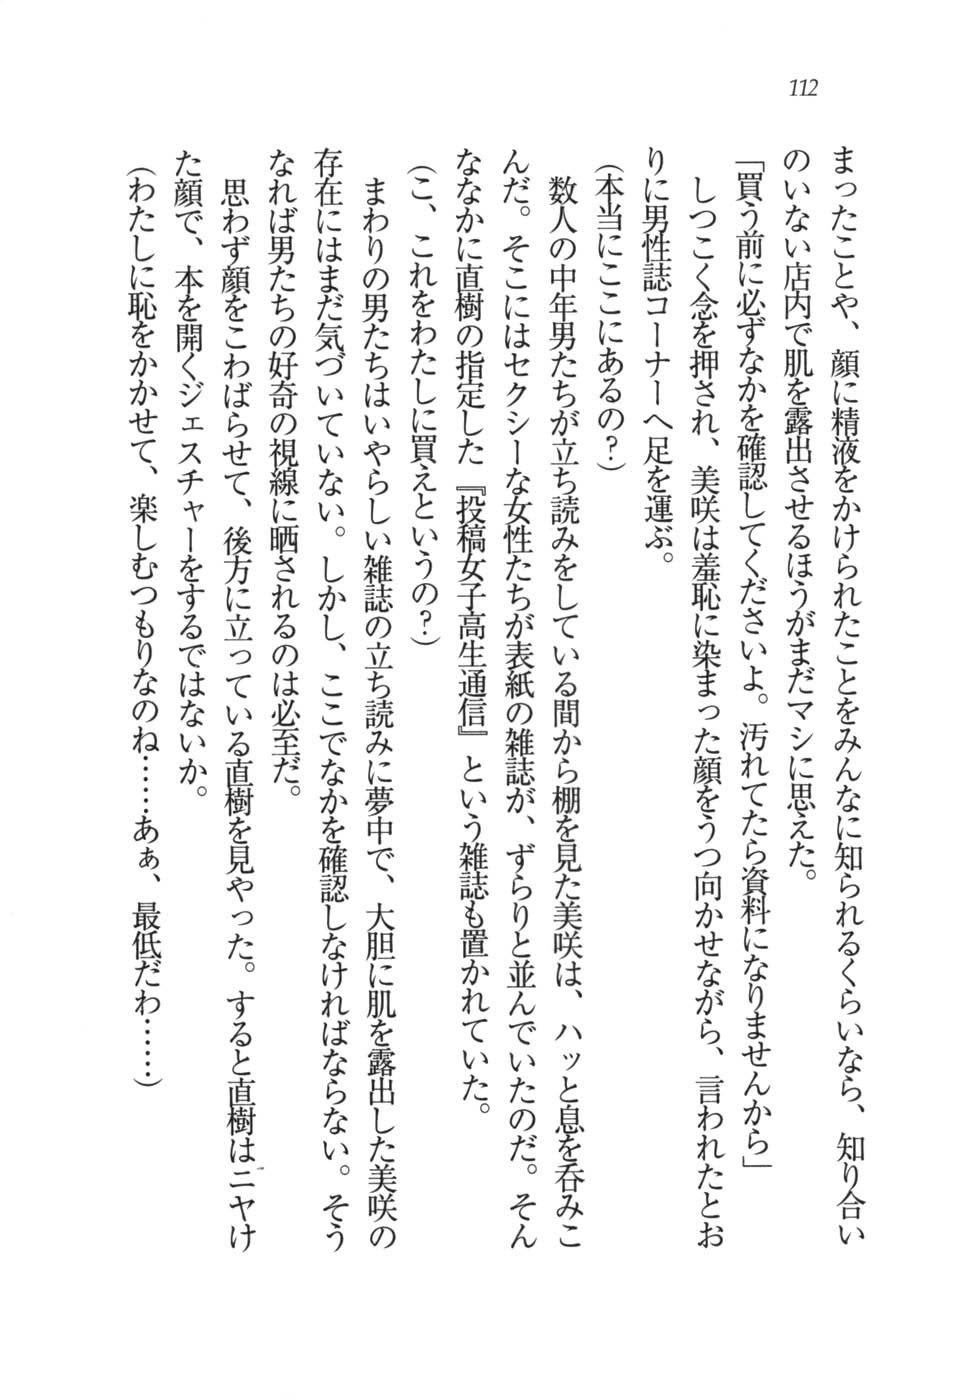 112
まったことや、顔に精液をかけられたことをみんなに知られるくらいなら、知り合い
のいない店内で肌を露出させるほうがまだマシに思えた。
「買う前に必ずなかを確認してくださいよ。汚れてたら資料になりませんから」
しつこく念を押され、美咲は羞恥に染まった顔をうつ向かせながら、言われたとお
りに男性誌コーナーへ足を運ぶ。
(本当にここにあるの?)
数人の中年男たちが立ち読みをしている間から棚を見た美咲は、ハッと息を呑みこ
んだ。そこにはセクシーな女性たちが表紙の雑誌が、ずらりと並んでいたのだ。そん
ななかに直樹の指定した『投稿女子高生通信』という雑誌も置かれていた。
(こ、これをわたしに買えというの?)
まわりの男たちはいやらしい雑誌の立ち読みに夢中で、大胆に肌を露出した美咲の
存在にはまだ気づいていない。しかし、ここでなかを確認しなければならない。そう
なれば男たちの好奇の視線に晒されるのは必至だ。
思わず顔をこわばらせて、後方に立っている直樹を見やった。すると直樹はニヤけ
た顔で、本を開くジェスチャーをするではないか。
(わたしに恥をかかせて、楽しむつもりなのね……あぁ、最低だわ……)